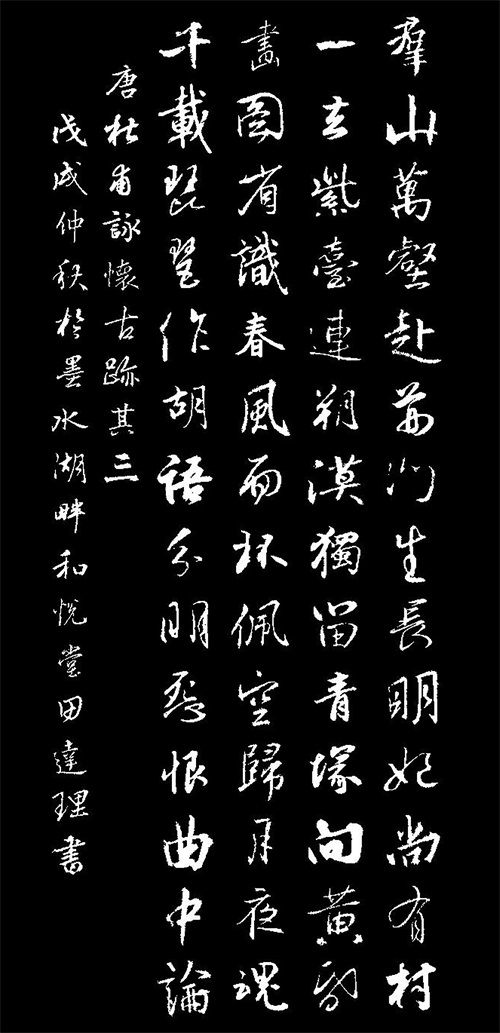 羣山萬壑赴荊門生長明妃尚有村
一去紫臺連朔漠獨留青塚向黃昏
畫圖省識春風面环佩空歸月夜魂
千載琵琶作胡語分明怨恨曲中論
唐杜甫詠懷古跡其三
戊戌仲秋於墨水湖畔和悅堂田達理書